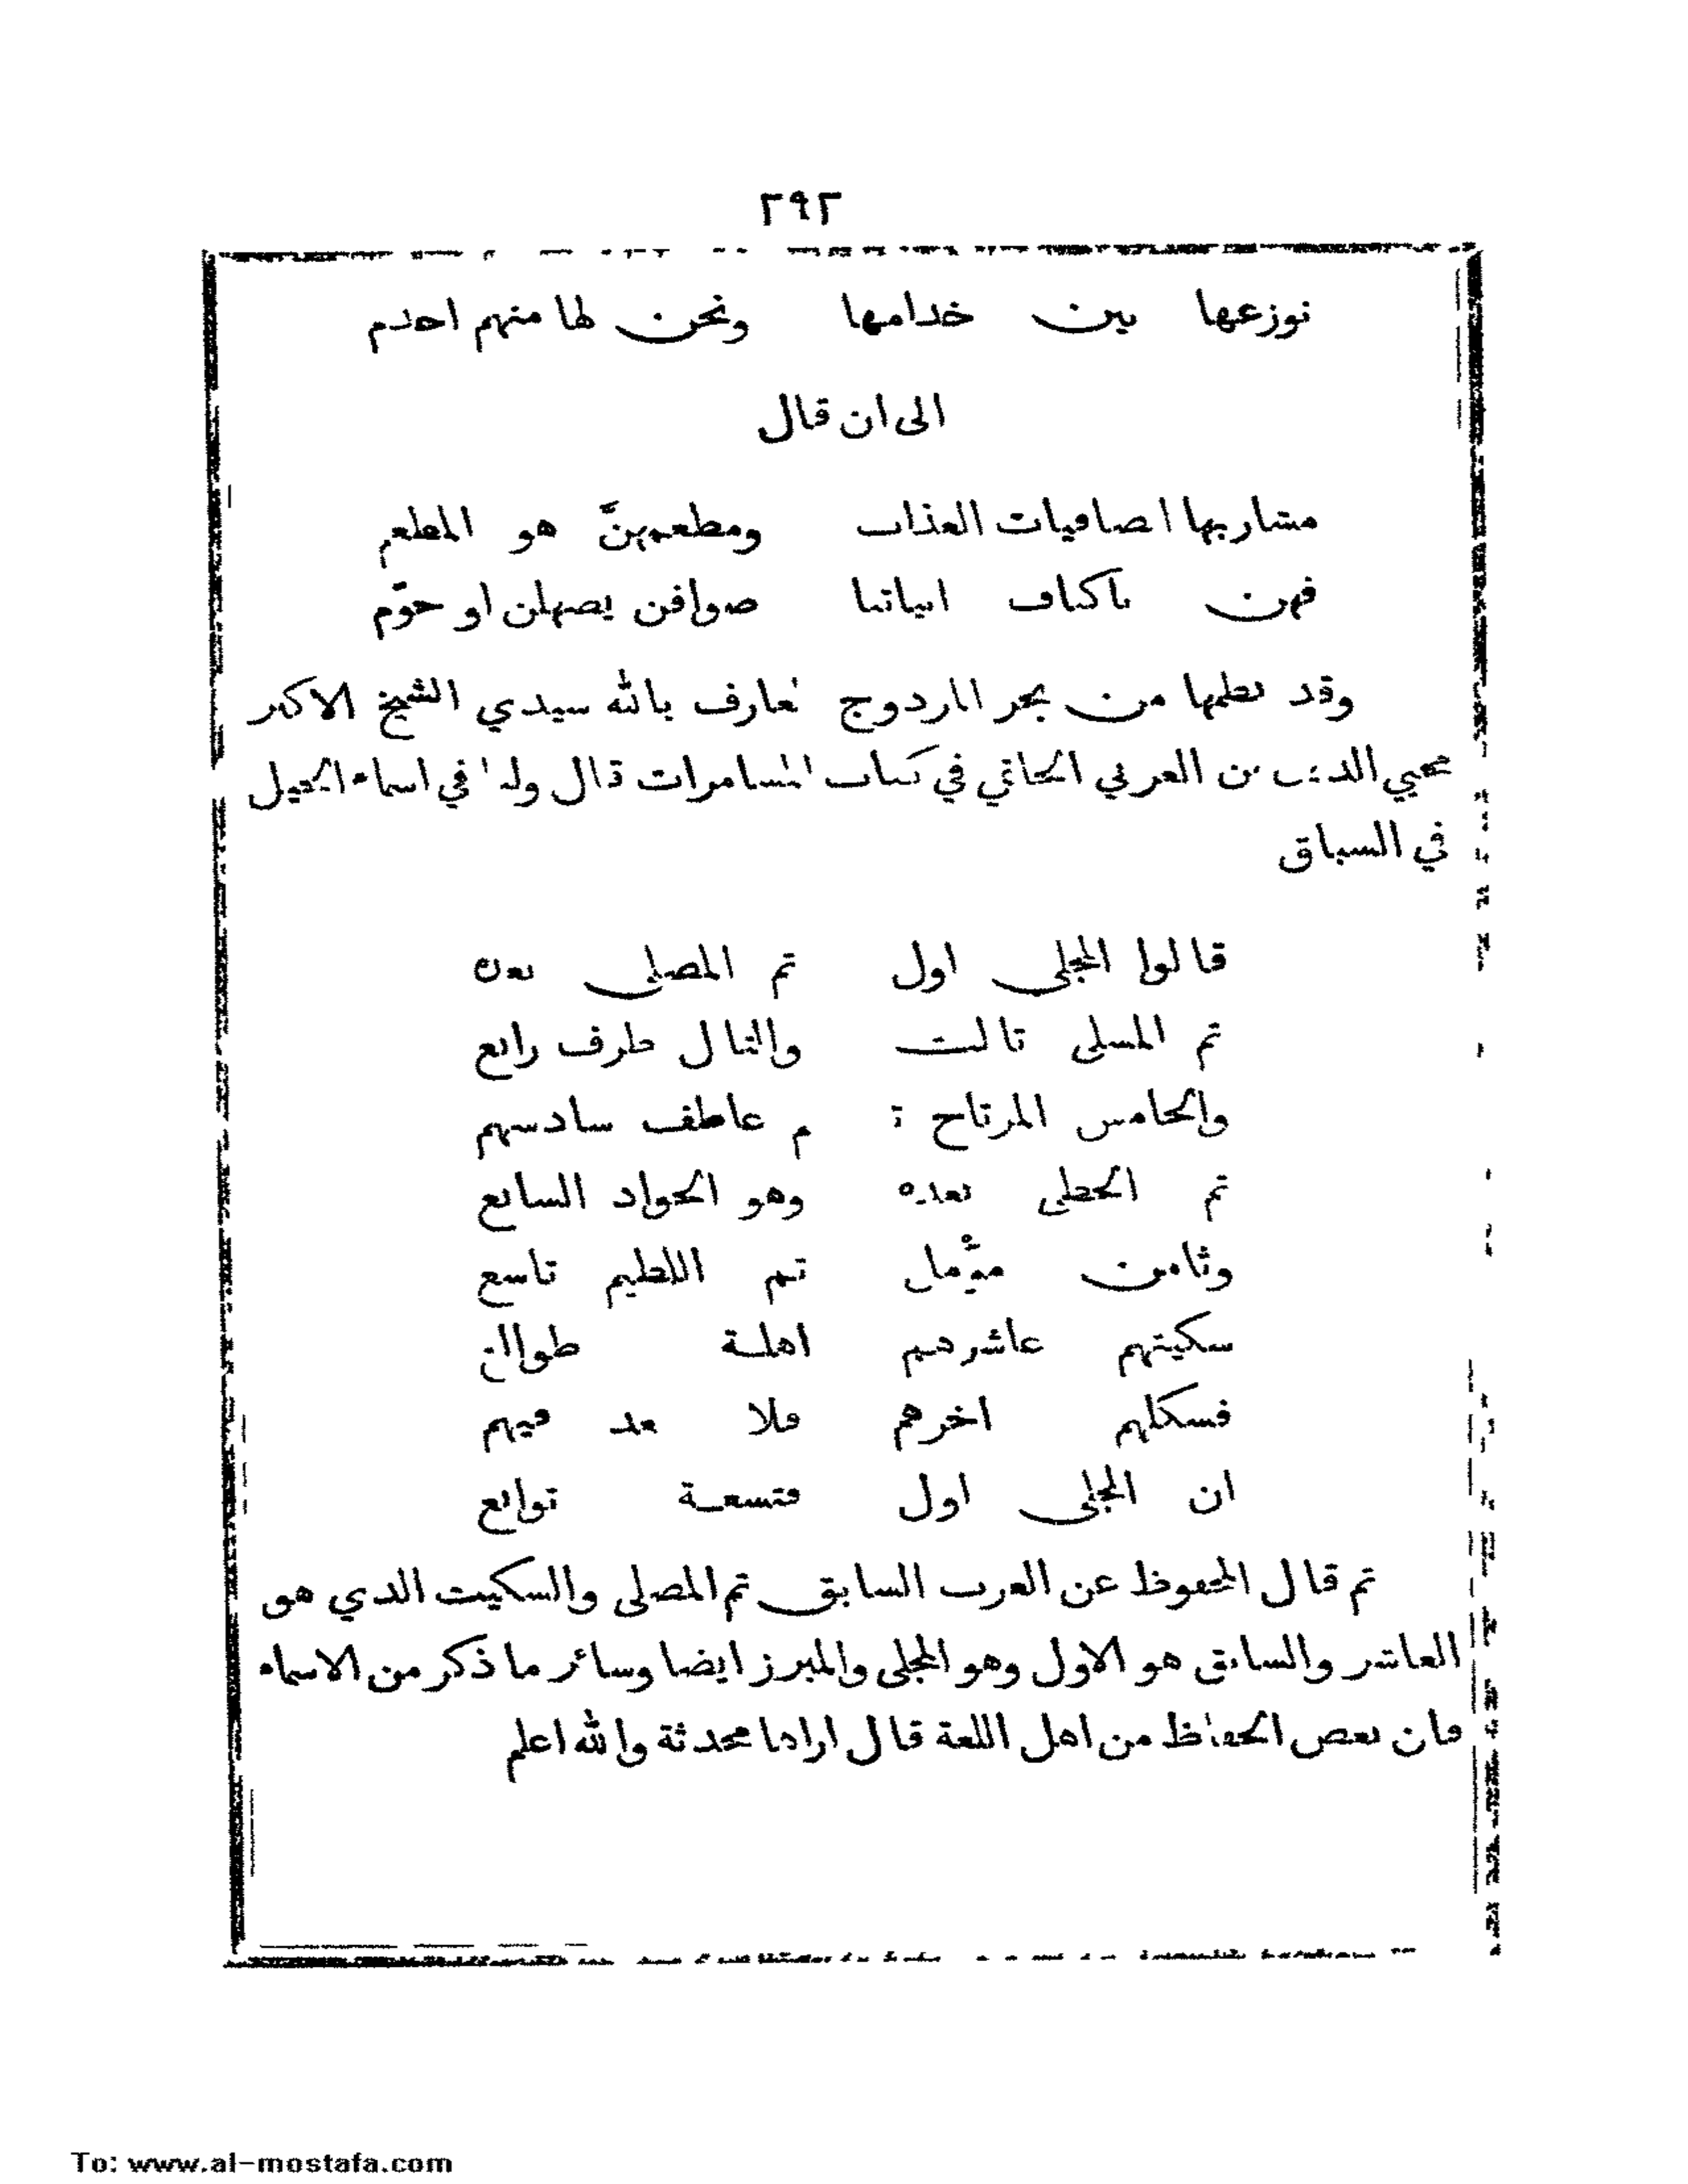 ٢٩٢
نوزعها بين خدامها ونحن لها منهم اخدم
الى ان قال
مشاربها الصافيات العذاب ومطعمهنّ هو المطعم
فهن باكناف ابياتنا صوافن يصهلن او حوّم
وقد نظمها من بحر المزدوج العارف بالله سيدي الشيخ الاكبر
محيي الدين بن العربي الحاتمي في كتاب المسامرات قال ولنا في اسماء الخيل
في السباق
قالوا المجلى اول ثم المصلى بعده
ثم المسلى ثالث والتال طرف رابع
والخامس المرتاح ثم عاطف سادسهم
ثم الحظى بعده وهو الجواد السابع
وثامن مؤمل ثم اللطيم تاسع
سكيتهم عاشرهم اهلة طوالع
فسكلهم اخرهم فلا يعد فيهم
ان المجلى اول فتسعة توابع
ثم قال المحفوظ عن العرب السابق ثم المصلى والسكيت الذي هو
العاشر والسابق هو الاول وهو المجلى والمبرز ايضا وسائر ما ذكر من الاسماء
فان بعض الحفاظ من اهل اللغة قال اراها محدثة والله اعلم
To: www.al-mostafa.com